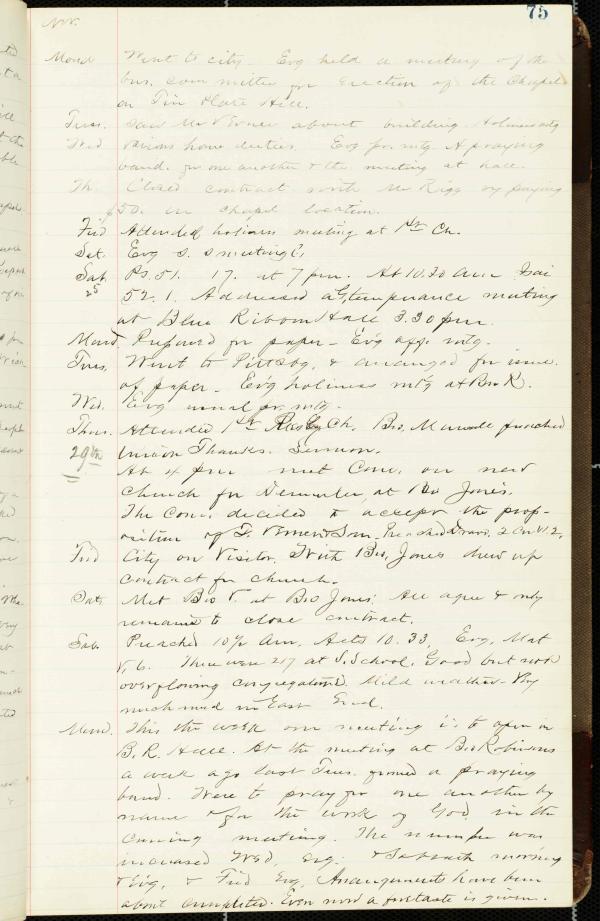 75
Nov.
Mond Went to city. Evg held a meeting of the
bus. committee for erection of the Chapel
on Tin Plate Hill.
Tues. Saw Mr Verner about building. Holiness mtg
Wed Various home duties. Evg pr. mtg. A praying
band. for one another & the meeting at hall.
Th. Closed contract with Mr Rigg by paying
$50. in chapel location.
Frid Attended holiness meeting at 1st Ch.
Sat. Evg S. S meeting
Sab. Ps. 51. 17. at 7 pm. At 10.30 am Isai
25
52. 1. Addressed a temperance meeting
at Blue Ribbon Hall 3.30 pm.
Mond. Prepared for paper - Evg off. mtg.
Tues. Went to Pittsbg, & arranged for issue
of paper - Evg holiness mtg at Bro R.
Wed. Evg usual pr. mtg.
Thur. Attended 1st Ch. Bro. preached
29th Union Thanks. Sermon.
At 4 pm met Com. on new
Church for December, at Bro Jones.
The Com. decided to accept the prop-
osition of Verner & Son. 2 Cor. V. 2,
Frid City on Visitor. With Bro. Jones drew up
contract for church.
Sat. Met Bro V. at Bro Jones; All agree & only
remains to close contract.
Sab. Preached 10½ am. Acts 10. 33. Evg. Mat
V, 6. There were 217 at S. School. Good but not
overflowing congregations. Mild weather - Very
much mud in East End.
Mond. This the week our meeting is to open in
B. R. Hall. At the meeting at Bro Robinsons
a week ago last Tues. formed a praying
band. Were to pray for one another by
name & for the work of God in the
coming meeting. The number was
increased Wed. evg. & Sabbath morning
& Evg, & Frid Evg, Arrangements have been
about completed. Even now a foretaste is given.